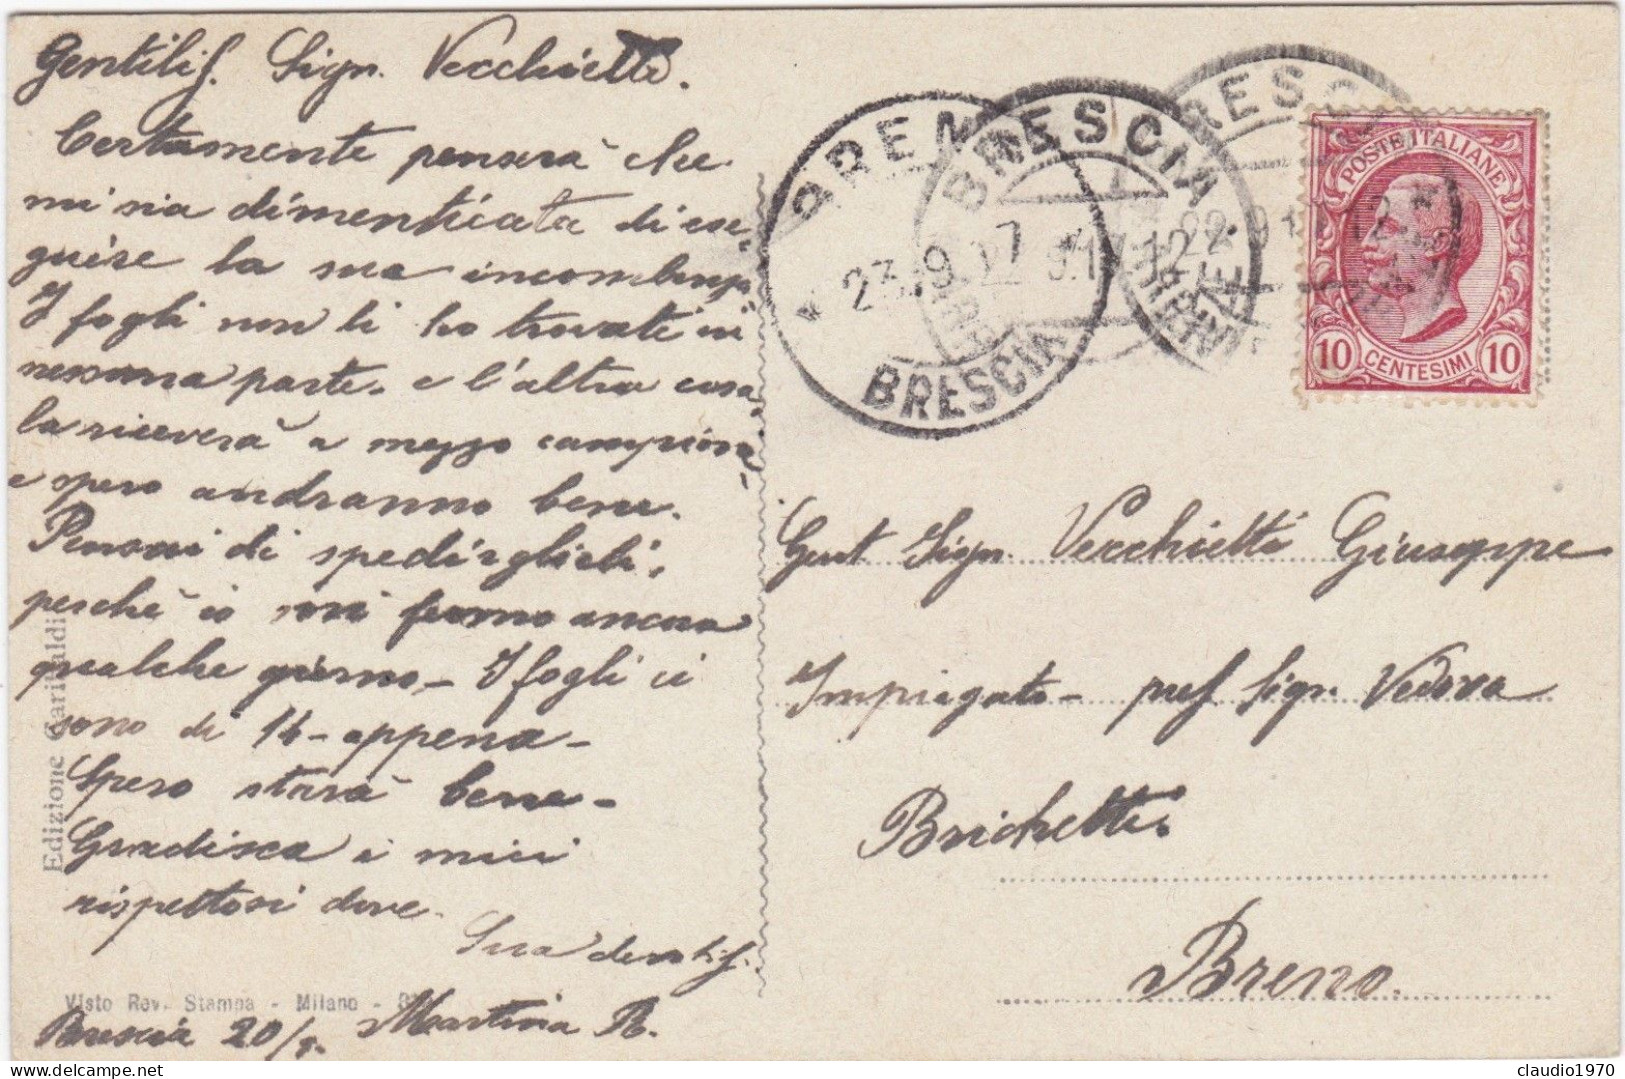 Gentilis. Sign. Vecchietti.
Certamente penserà che
mi sia dimenticata di ese-
guire la sua incombenza
I fogli non li ho trovati in
nessuna parte. e l'altra cosa
la riceverà a mezzo campione
e spero andranno bene.
Pensai di spedirglieli,
perchè io mi fermo ancora
qualche giorno. I fogli ci
sono di 14 - appena -
Spero starà bene -
Gradisca i miei
rispettosi dove.
Sua devotis.
Brescia 20/9. Martina R.
Edizione Garibaldi
Visto Rev. Stampa - Milano -
BRENO
23.9.17
BRESCIA
BRESCIA
22.9.17.12
FERROVIA
BRESCIA
22.9.17.12
POSTE ITALIANE
10 CENTESIMI 10
Gent Sign. Vecchietti Giuseppe
Impiegato - pres Sign. Vedova
Brichetti.
Breno.
claudio1970